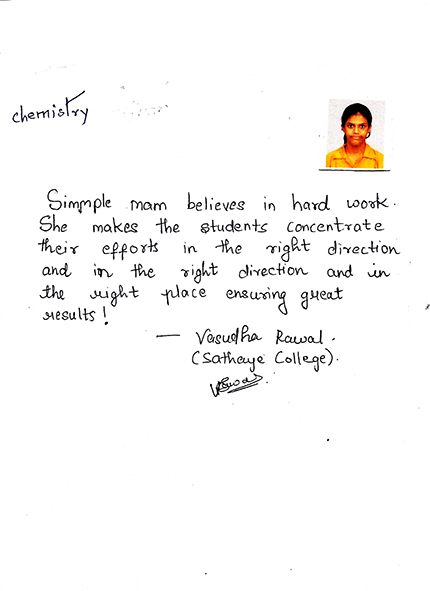 chemistry
Simmple mam believes in hard work.
She makes the students concentrate
their efforts in the right direction
and in the right direction and in
the right place ensuring great
results!
— Vasudha Rawal.
(Sathaye College).